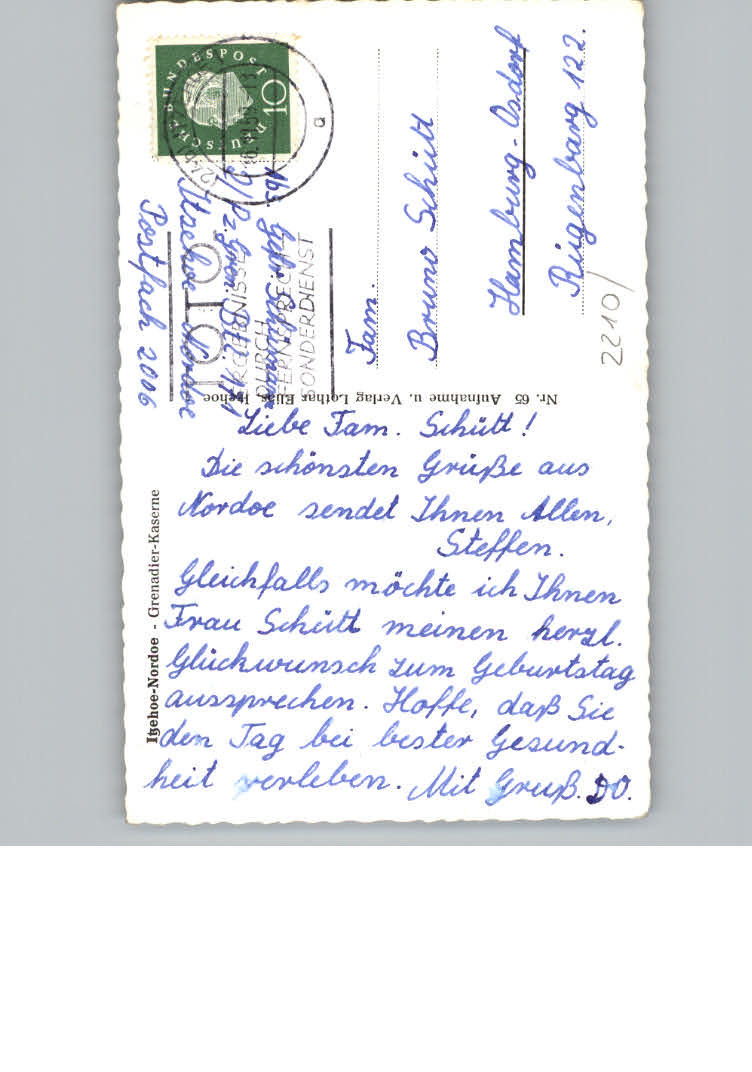 Liebe Fam. Schütt!
Die schönsten Grüße aus
Nordoe sendet Ihnen Allen,
Steffen.
Gleichfalls möchte ich Ihnen
Frau Schütt meinen herzl.
Glückwunsch zum Geburtstag
aussprechen. Hoffe, daß Sie
den Tag bei bester Gesund-
heit verleben. Mit Gruß. DO.
Itzehoe-Nordoe - Grenadier-Kaserne
Nr. 65 Aufnahme u. Verlag Lothar Elias, Itzehoe
DEUTSCHE BUNDESPOST
10
TOTO
DURCH
FERNSPRECH
SONDERDIENST
Abs. Gefr.
Itzehoe Nordoe
Postfach 2006
Fam.
Bruno Schütt
Hamburg-Osdorf
Rugenbarg 122.
2210/